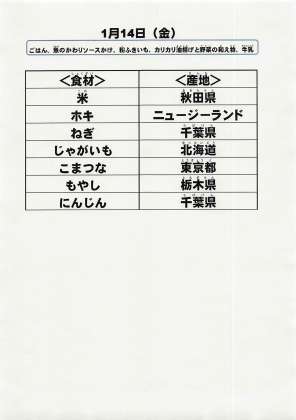 1月14日（金）
ごはん、魚のかわりソースかけ、粉ふきいも、カリカリ油揚げと野菜の和え物、牛乳
＜食材＞ ＜産地＞
米 秋田県
ホキ ニュージーランド
ねぎ 千葉県
じゃがいも 北海道
こまつな 東京都
もやし 栃木県
にんじん 千葉県